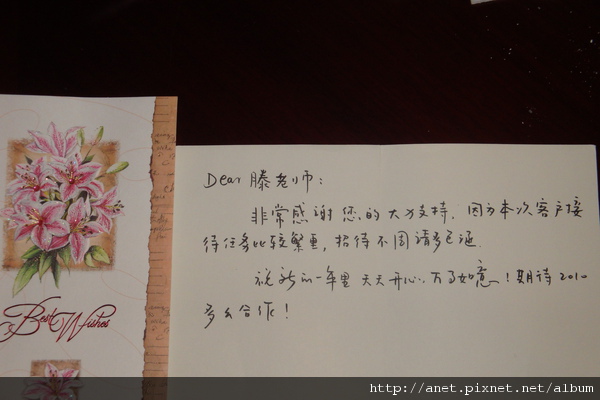 Dear 滕老师：
非常感谢您的大力支持，因为本次客户接
待任务比较繁重，招待不周请多包涵.
祝新的一年里 天天开心，万事如意！期待2010
多多合作！
Best Wishes
http://anet.pixnet.net/album